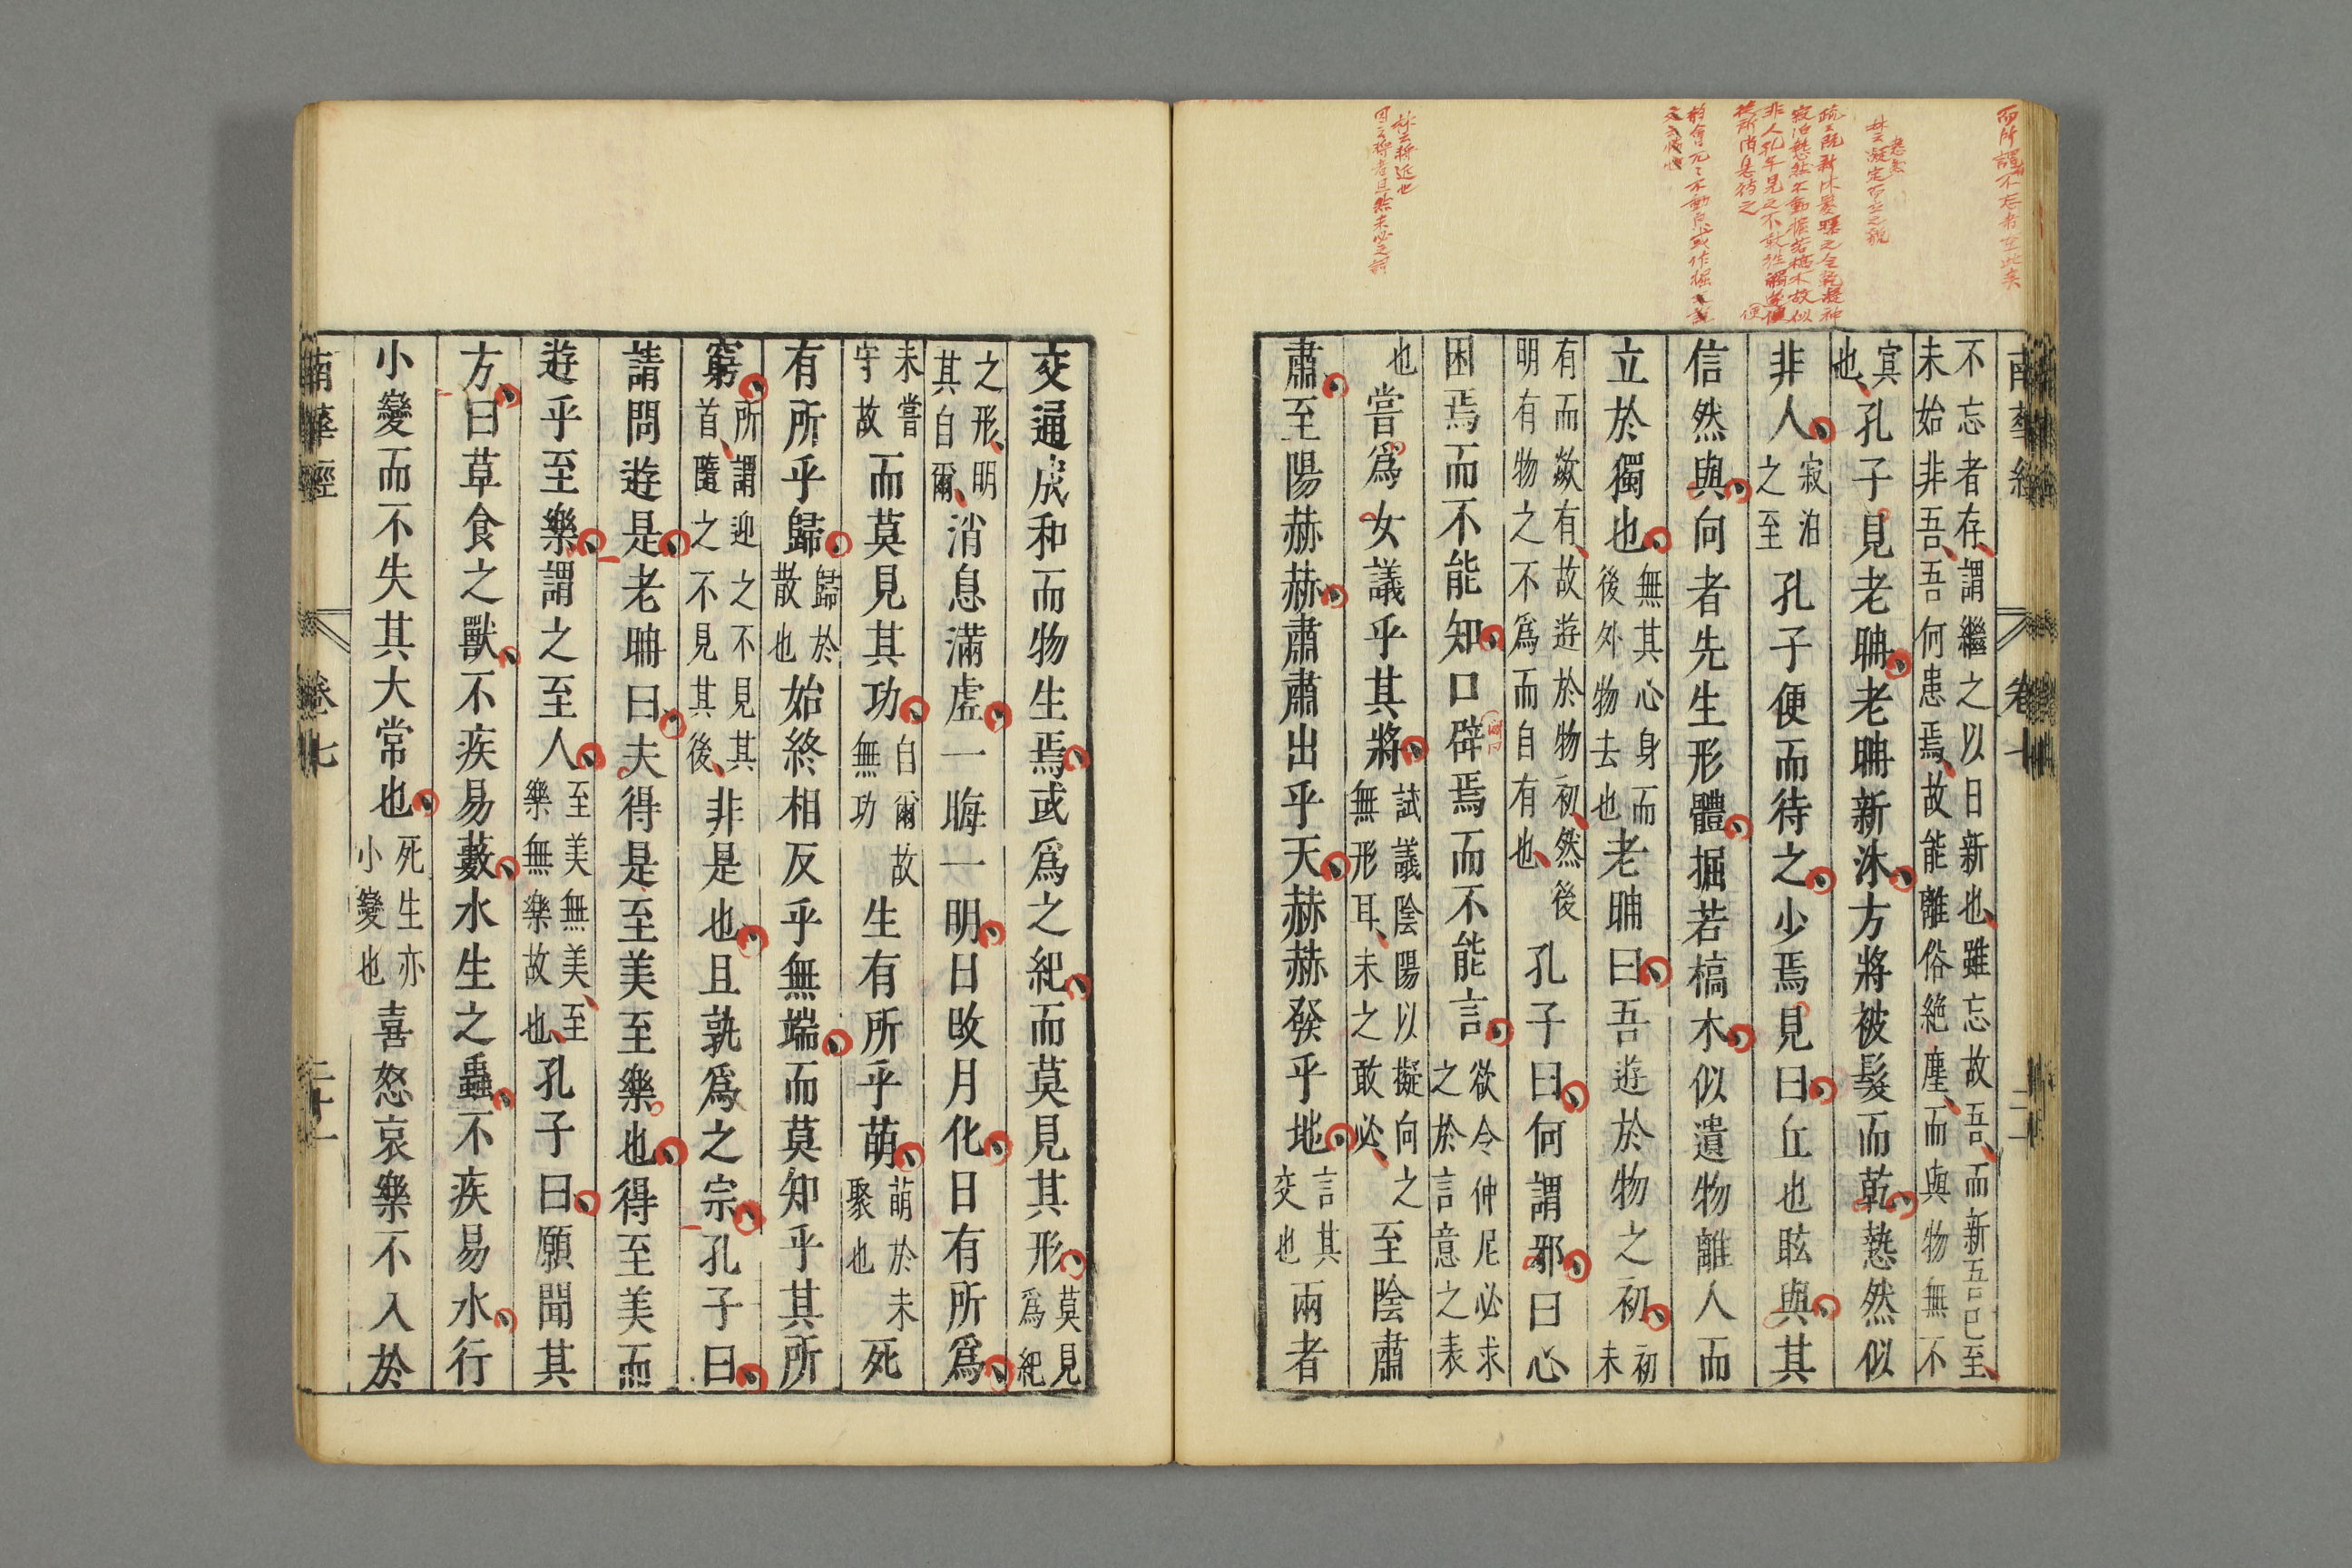 而所謂不忘者在此矣
林云凝定而立之貌
林云將近也
南華經 卷七
不忘者存謂繼之以日新也雖忘故吾而新吾已至
未始非吾吾何患焉故能離俗絶塵而與物無不
冥也孔子見老聃老聃新沐方將被髮而乾慹然似
非人寂泊之至孔子便而待之少焉見曰丘也眩與其
信然與向者先生形體掘若槁木似遺物離人而
立於獨也無其心身而後外物去也老聃曰吾遊於物之初初未
有而歘有故遊於物初然後明有物之不爲而自有也孔子曰何謂邪曰心
困焉而不能知口辟焉而不能言欲令仲尼必求之於言意之表
也嘗爲女議乎其將試議陰陽以擬向之無形耳未之敢必至陰肅
肅至陽赫赫肅肅出乎天赫赫發乎地言其交也兩者
交通成和而物生焉或爲之紀而莫見其形莫見爲紀
之形明其自爾消息滿虛一晦一明日改月化日有所爲
未嘗守故而莫見其功自爾故無功生有所乎萌萌於未聚也死
有所乎歸歸於散也始終相反乎無端而莫知乎其所
窮所謂迎之不見其首隨之不見其後非是也且孰爲之宗孔子曰
請問遊是老聃曰夫得是至美至樂也得至美而
遊乎至樂謂之至人至美無美至樂無樂故也孔子曰願聞其
方曰草食之獸不疾易藪水生之蟲不疾易水行
小變而不失其大常也死生亦小變也喜怒哀樂不入於
南華經 卷七 二十一